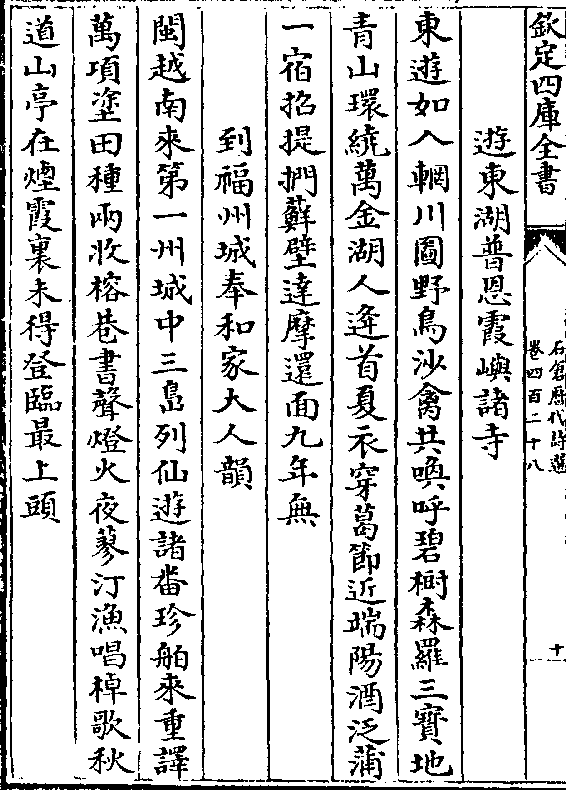 欽定四庫全書
石倉歷代詩選
卷四百二十八
十
遊東湖普恩霞嶼諸寺
東遊如入輞川圖野鳥沙禽共喚呼碧樹森羅三寶地
青山環繞萬金湖人逢首夏衣穿葛節近端陽酒泛蒲
一宿招提捫蘚壁達摩還面九年無
到福州城奉和家大人韻
閩越南來第一州城中三島列仙遊諸畨珍舶來重譯
萬項塗田種兩收榕巷書聲燈火夜蓼汀漁唱棹歌秋
道山亭在煙霞裏未得登臨最上頭